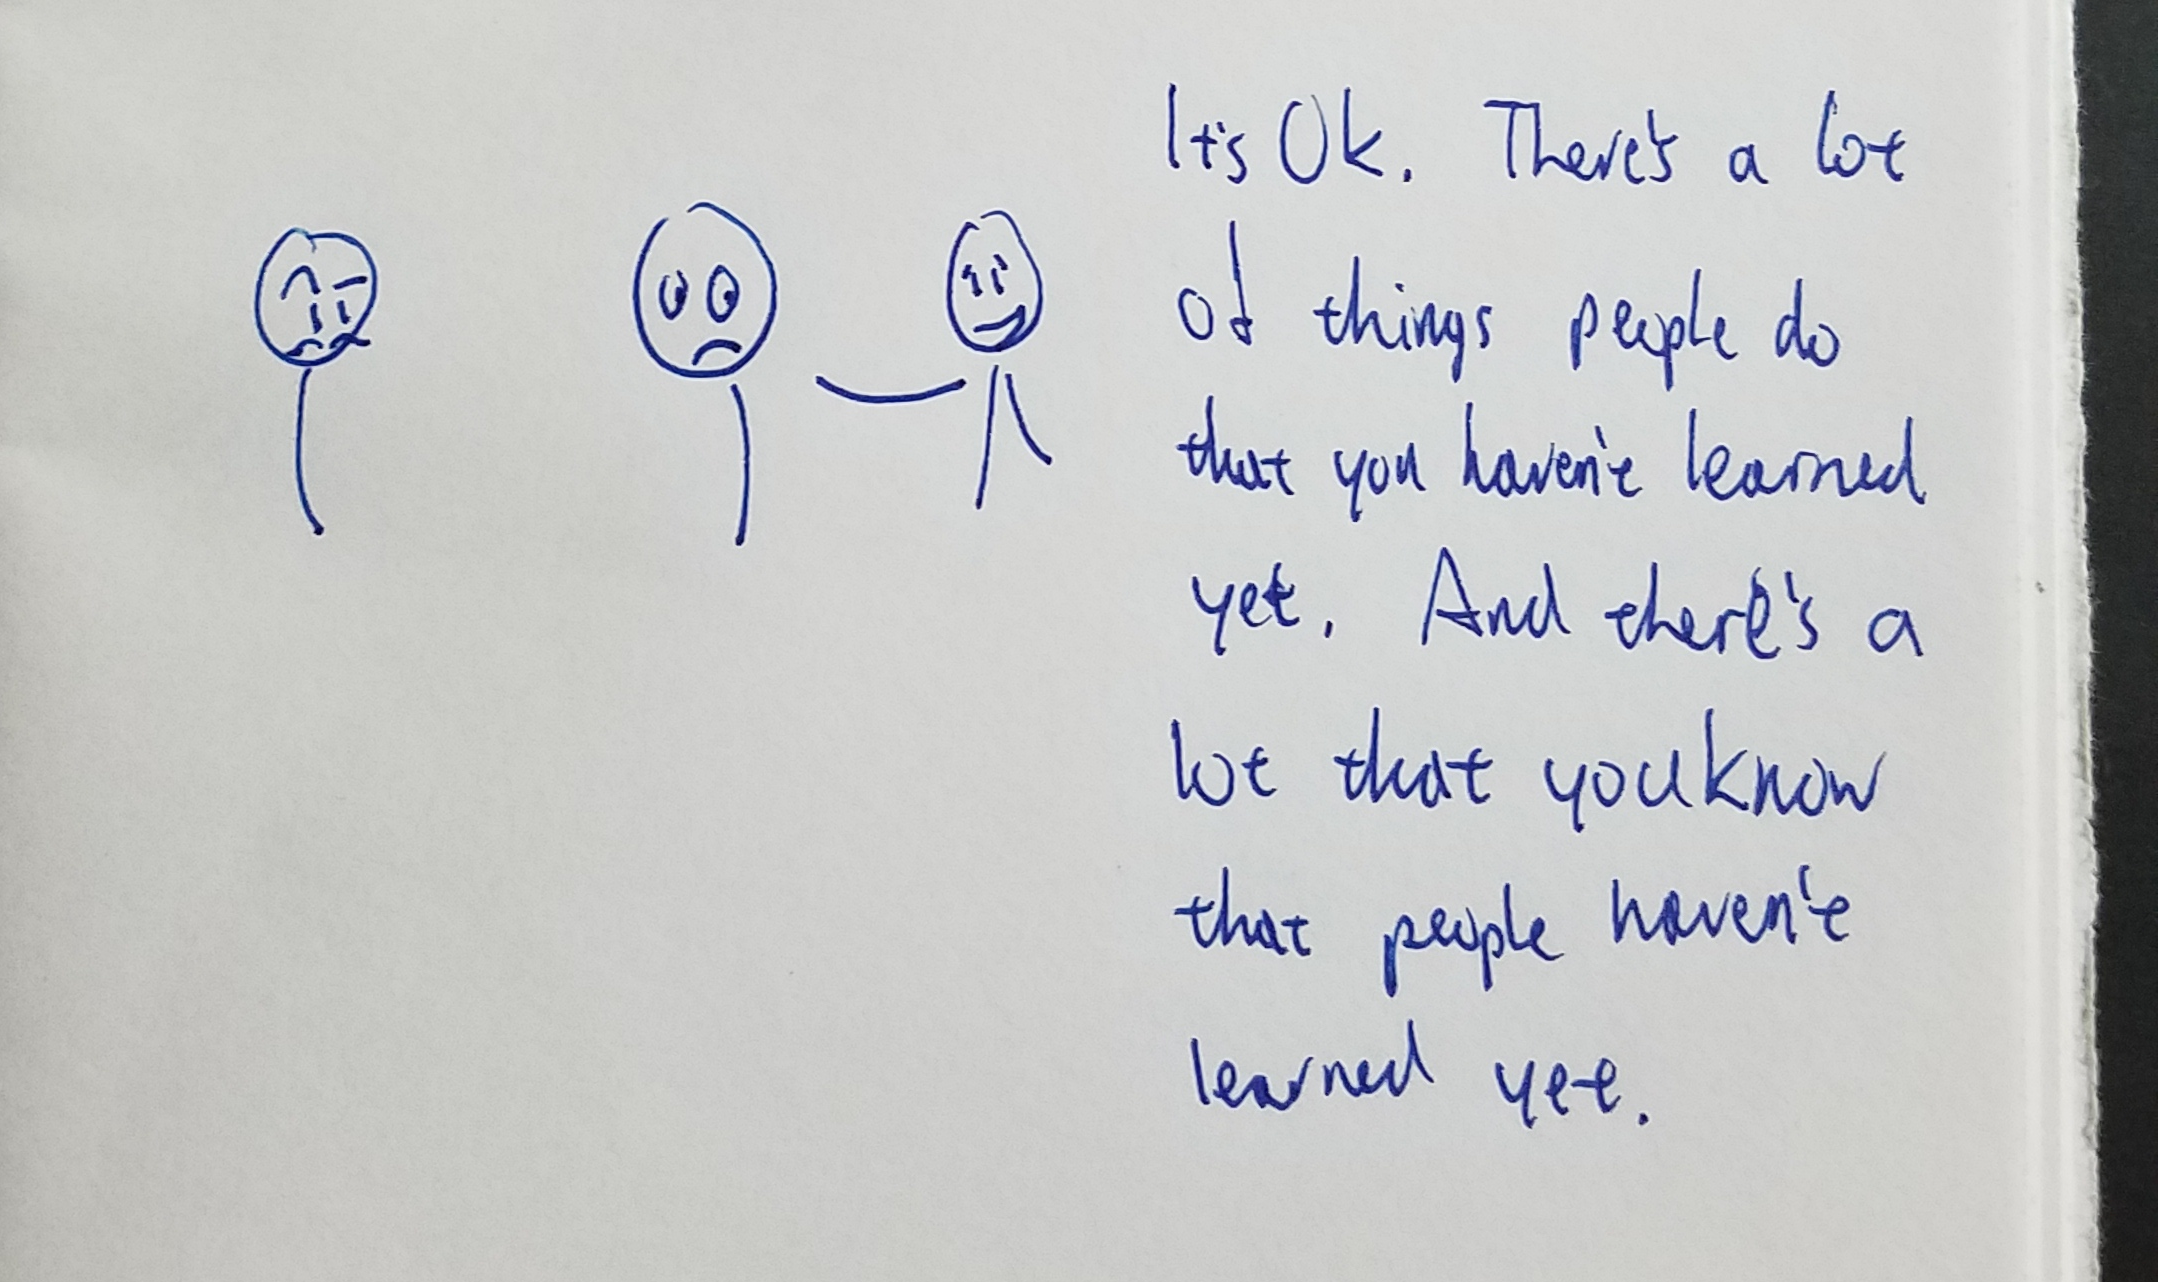 It's Ok. There's a lot
of things people do
that you haven't learned
yet. And there's a
lot that you know
that people haven't
learned yet.